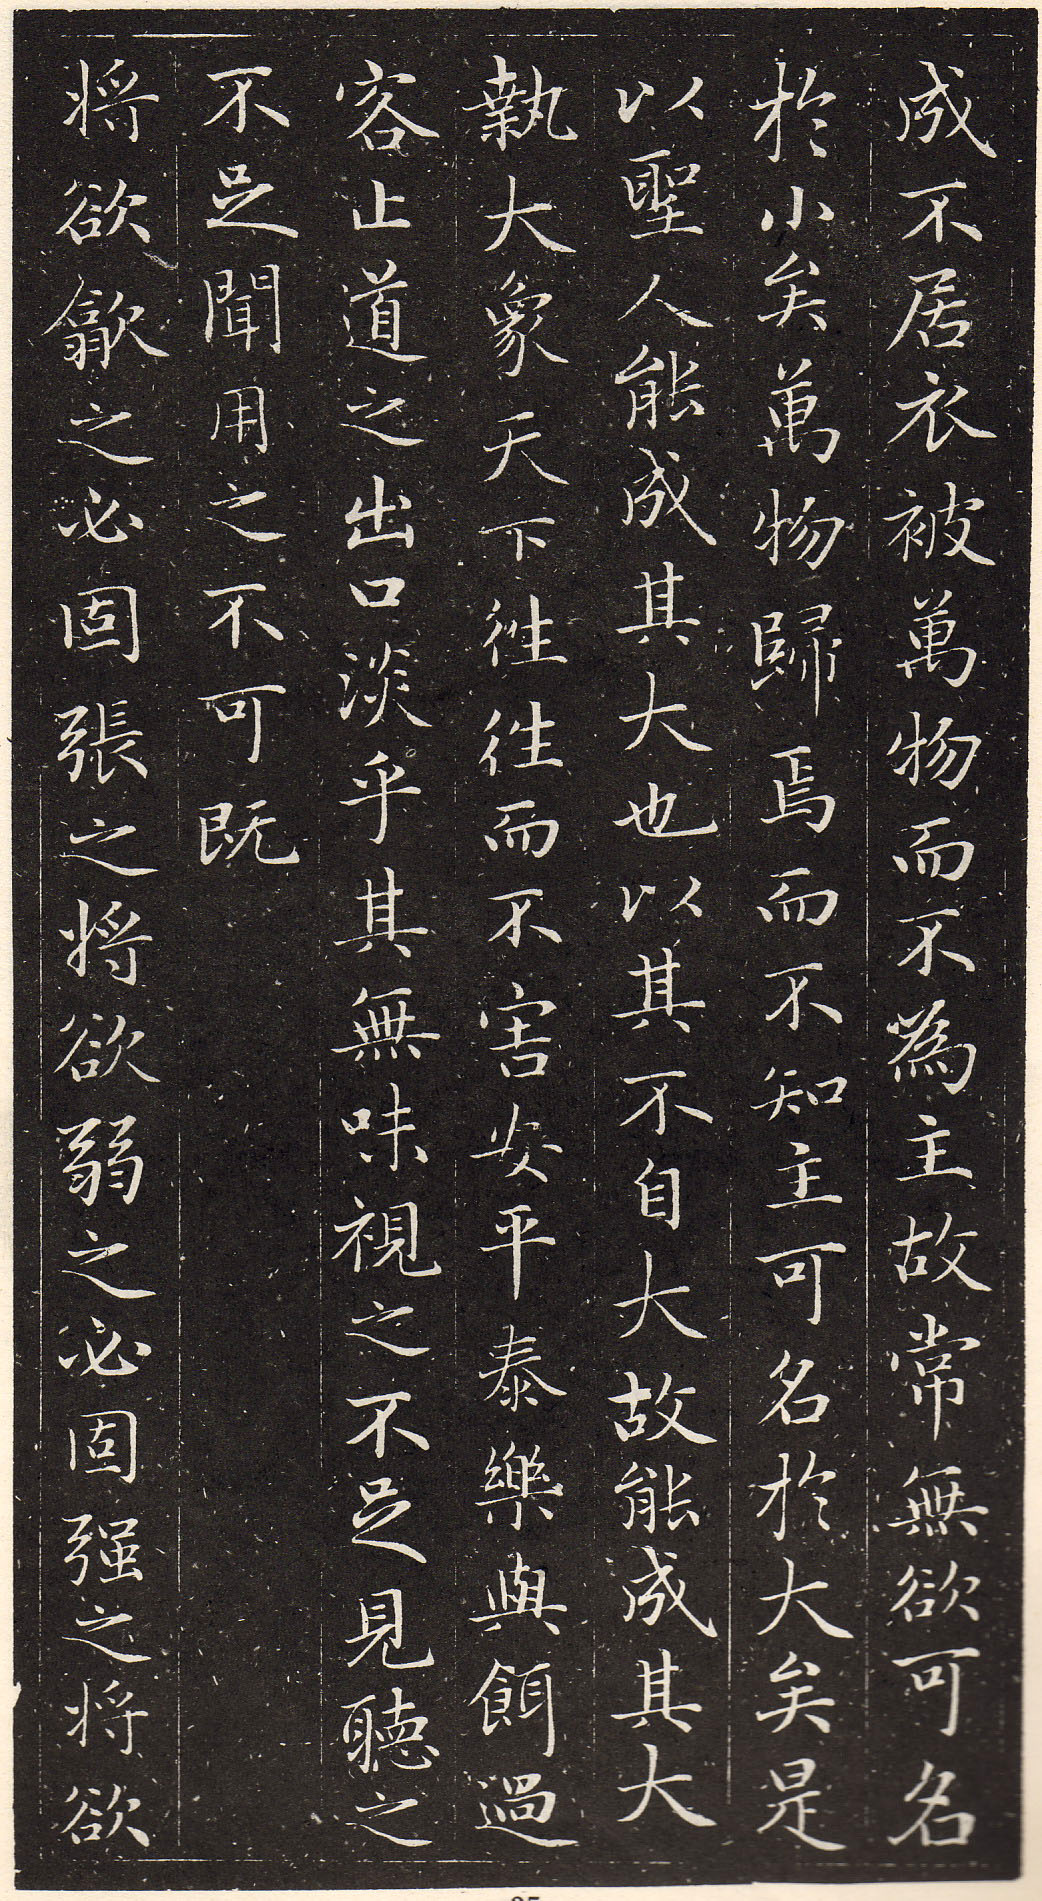 成不居衣被萬物而不為主故常無欲可名
於小矣萬物歸焉而不知主可名於大矣是
以聖人能成其大也以其不自大故能成其大
執大象天下往往而不害安平泰樂與餌過
客止道之出口淡乎其無味視之不足見聽之
不足聞用之不可既
將欲歙之必固張之將欲弱之必固强之將欲